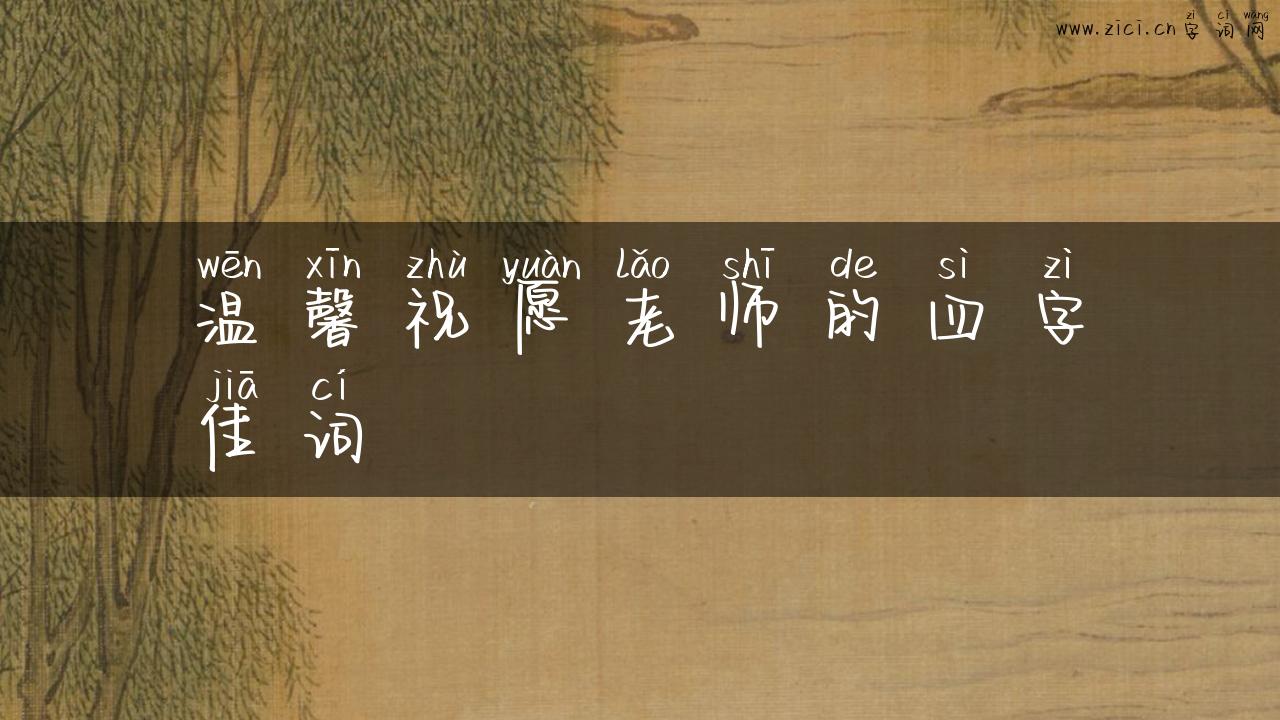 zì cí wǎng
www.zici.cn字词网
wēn xīn zhù yuàn lǎo shī de sì zì
温馨祝愿老师的四字
jiā cí
佳词